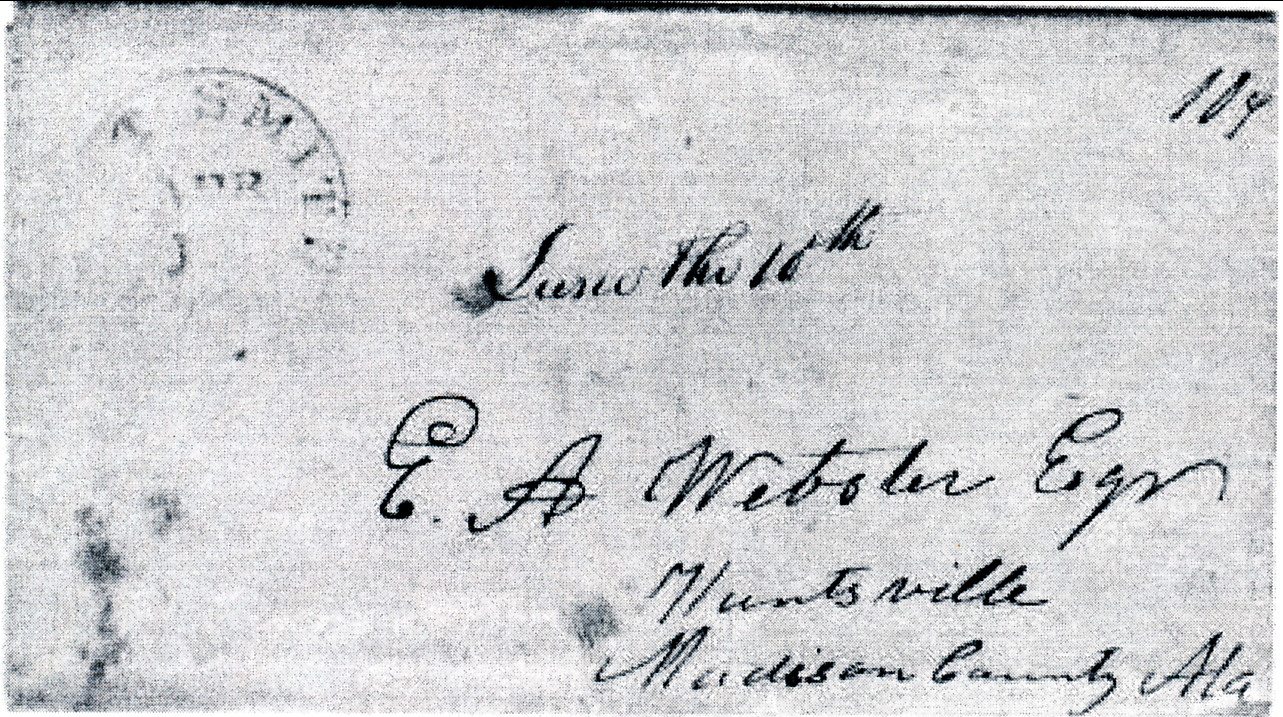 SMITH
June the 10th
E. A Webster Eqr
Huntsville
Madison County Ala